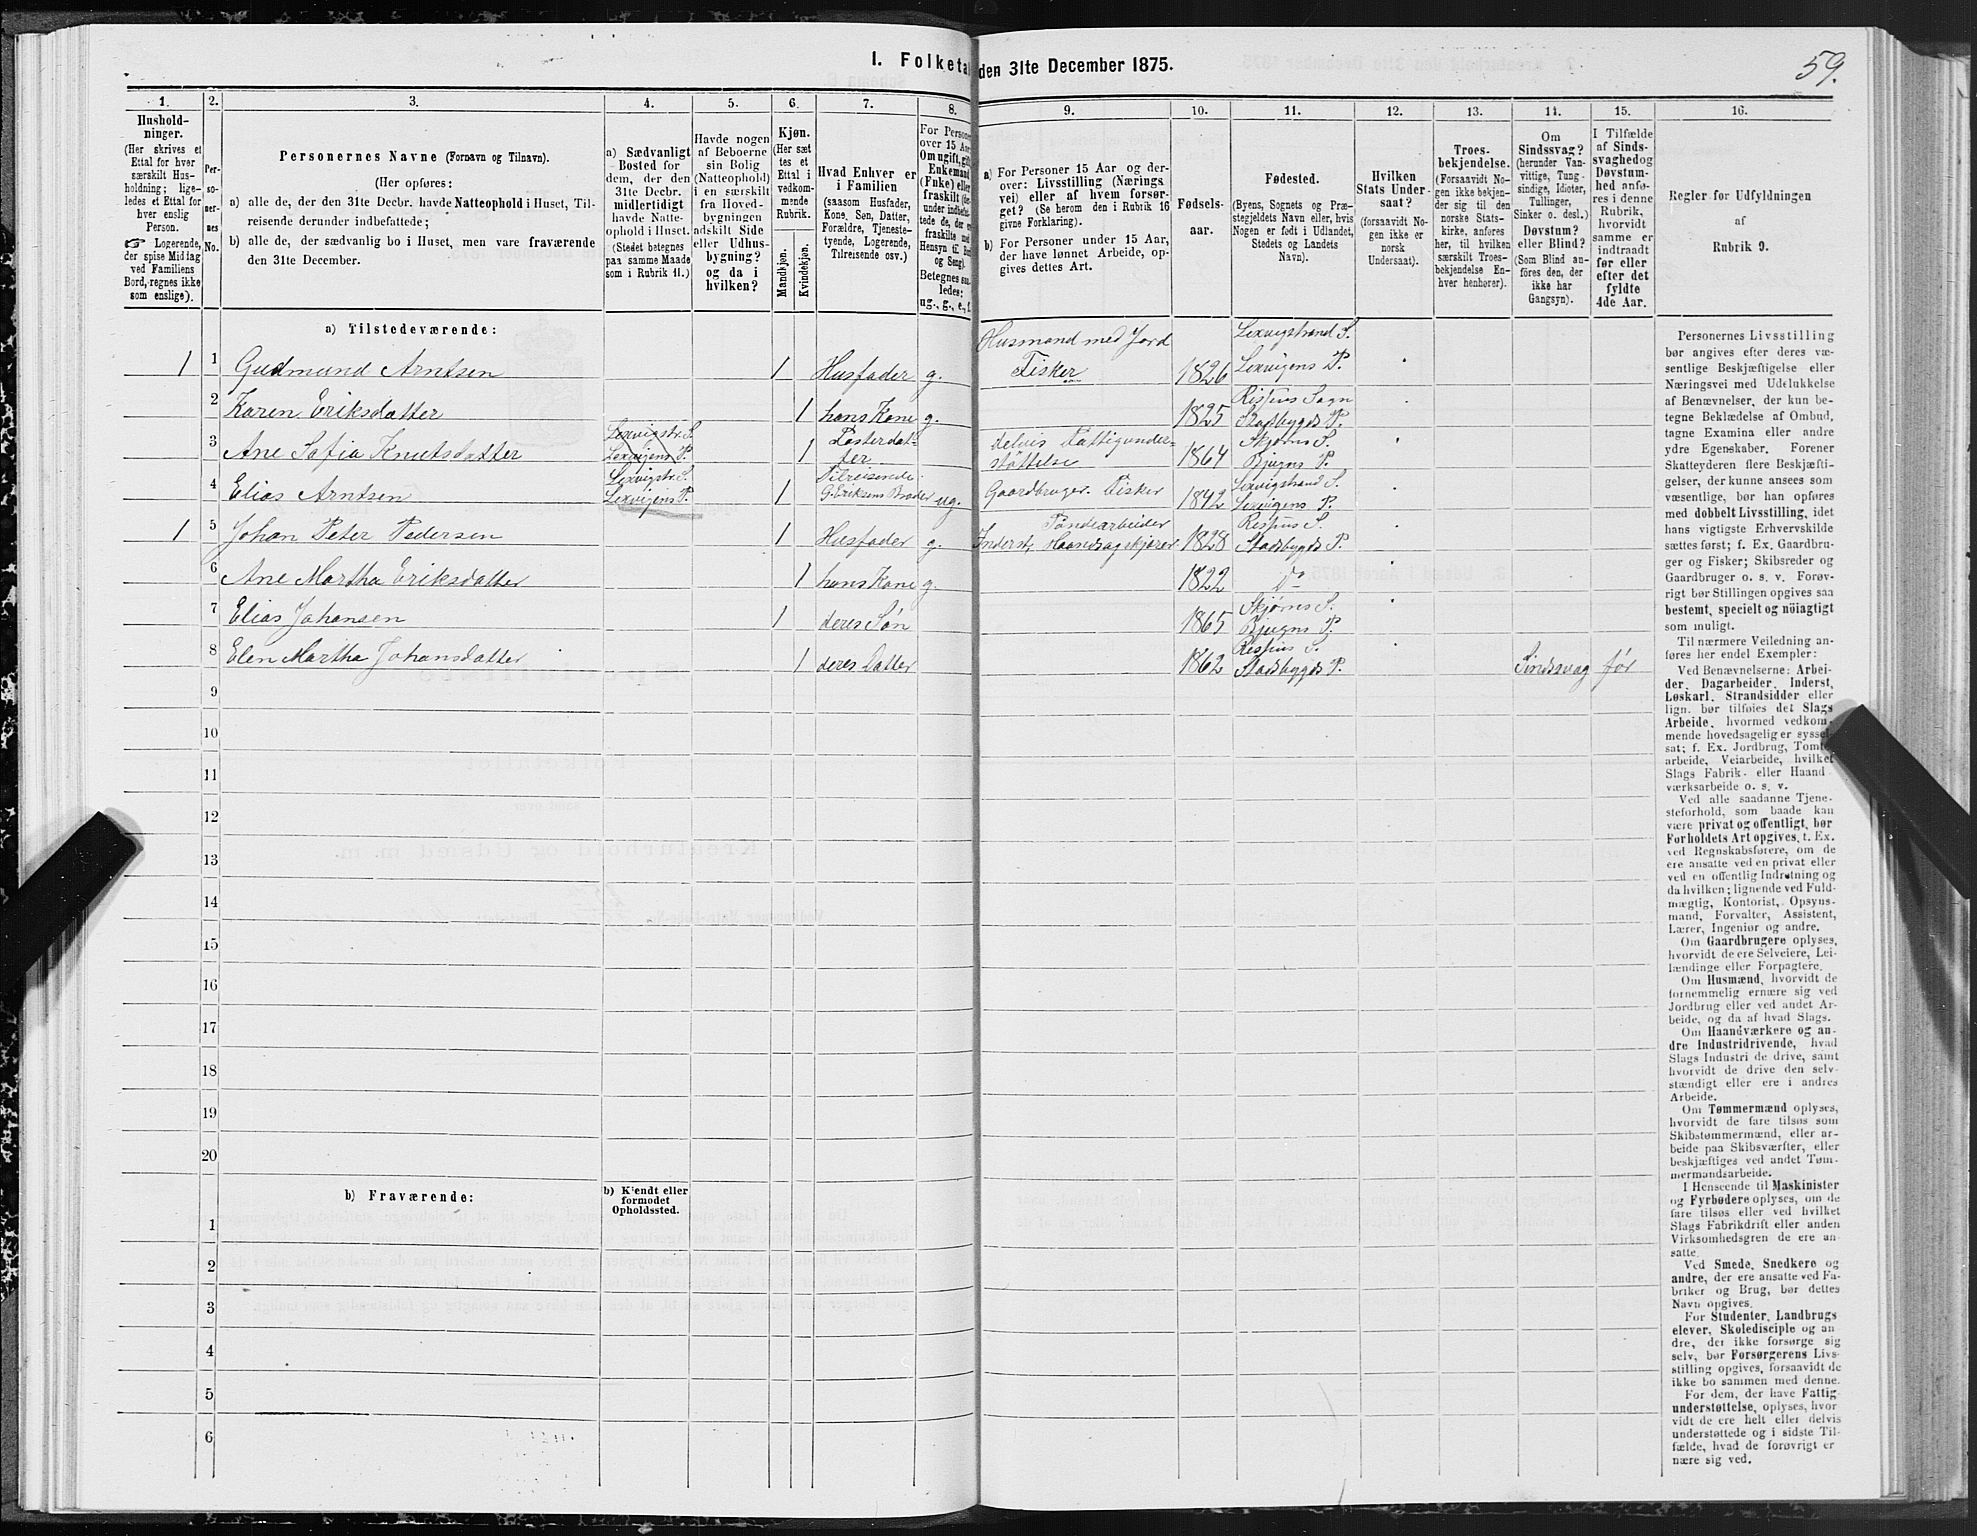 59.
I. Folketal den 31te December 1875.
1. 2. 3. 4. 5. 6. 7. 8. 9. 10. 11. 12. 13. 14. 15. 16.
Hushold-
ninger.
(Her skrives et
Ettal for hver
særskilt Hus-
holdning; lige-
ledes et Ettal for
hver enslig
Person.
☞ Logerende,
der spise Middag
ved Familiens
Bord, regnes ikke
som enslige).
Per-
so-
ner-
nes
No.
Personernes Navne (Fornavn og Tilnavn).
(Her opføres:
a) alle de, der den 31te Decbr. havde Natteophold i Huset, Til-
reisende derunder indbefattede;
b) alle de, der sædvanlig bo i Huset, men vare fraværende
den 31te December.
a) Sædvanligt
Bosted for
dem, der den
31te Decbr.
midlertidigt
havde Natte-
ophold i Huset.
(Stedet betegnes
paa samme Maade
som i Rubrik 11.)
Havde nogen
af Beboerne
sin Bolig
(Natteophold)
i en særskilt
fra Hoved-
bygningen
adskilt Side
eller Udhus-
bygning?
og da i
hvilken?
Kjøn.
(Her sæt
tes et
Ettal i
vedkom-
mende
Rubrik.
Mandkjøn.
Kvindekjøn.
Hvad Enhver er
i Familien
(saasom Husfader,
Kone, Søn, Datter,
Forældre, Tjeneste-
tyende, Logerende,
Tilreisende osv.)
For Persone
over 15 Aar
Om ugift, gift
Enkemand
(Enke) eller
fraskilt
Betegnes saa-
ledes:
ug., g., e., f.
a) For Personer 15 Aar og der-
over: Livsstilling (Nærings
vei) eller af hvem forsør-
get? (Se herom den i Rubrik 16
givne Forklaring).
b) For Personer under 15 Aar,
der have lønnet Arbeide, op-
gives dettes Art.
Fødsels-
aar.
Fødested.
(Byens, Sognets og Præ-
stegjeldets Navn eller, hvis
Nogen er født i Udlandet,
Stedets og Landets
Navn).
Hvilken
Stats Under-
saat?
(forsaavidt No-
gen ikke er
norsk
Undersaat).
Troes-
bekjendelse.
(Forsaavidt No-
gen ikke bekjen-
der sig til den
norske Stats-
kirke, anføres
her, til hvilken
særskilt Troes-
bekjendelse En-
hver henhører).
Om
Sindssvag?
(herunder Van-
vittige, Tung-
sindige, Idioter,
Tullinger,
Sinker o. desl.)
Døvstum?
eller Blind?
(Som Blind an-
føres den, der
ikke har
Gangsyn).
I Tilfælde
af Sinds-
svaghed og
Døvstum-
hed anfø-
res i denne
Rubrik,
hvorvidt
samme er
indtraadt
før eller
efter det
fyldte
4de Aar.
Regler for Udfyldningen
af
Rubrik 9.
a) Tilstedeværende:
Husmand med Jord Lexvigstrand S.
1 1 Gudmund Arntsen 1 Husfader g. Fisker 1826 Lexvigens P.
Rissens Sogn
2 Karen Eriksdatter 1 hans Kone g. 1825 Stadsbygds P.
Lexvigstr. S. Fosterdat- delvis Fattigunder- Skjørns S.
3 Ane Sofia Knutsdatter Lexvigens P. 1 ter støttelse 1864 Bjugns P.
Lexvigstr. S. Tilreisende Lexvigstrand S.
4 Elias Arntsen Lexvigens P. 1 G. Eriksens Broder ug. Gaardbruger. Fisker 1842 Lexvigens P.
Rissens S.
1 5 Johan Peter Pedersen 1 Husfader g. Inderst, Haandsagskjærer 1828 Stadsbygds P.
6 Ane Martha Eriksdatter 1 hans Kone g. 1822 Do
Skjørns S.
7 Elias Johansen 1 deres Søn 1865 Bjugns P.
Rissens S.
8 Elen Martha Johansdatter 1 deres Datter 1862 Stadsbygds P. Sindssvag før
9
10
11
12
13
14
15
16
17
18
19
20
b) Fraværende:
b) Kjendt eller
formodet
Opholdssted.
1
2
3
4
5
6
Personernes Livsstilling
bør angives efter deres væ-
sentlige Beskjæftigelse eller
Næringsvei med Udelukkelse
af Benævnelser, der kun be-
tegne Beklædelse af Ombud,
tagne Examina eller andre
ydre Egenskaber. Forener
Skatteyderen flere Beskjæfti-
gelser, der kunne ansees som
væsentlige, bør han opføres
med dobbelt Livsstilling, idet
hans vigtigste Erhvervskilde
sættes først; f. Ex. Gaardbru-
ger og Fisker; Skibsreder og
Gaardbruger o. s. v. Forøv-
rigt bør Stillingen opgives saa
bestemt, specielt og nöiagtigt
som muligt.
Til nærmere Veiledning an-
føres her endel Exempler:
Ved Benævnelserne: Arbei-
der, Dagarbeider, Inderst,
Løskarl, Strandsidder eller
lign. bør tilføies det Slags
Arbeide, hvormed vedkom-
mende hovedsagelig er syssel-
sat; f. Ex. Jordbrug, Tomte-
arbeide, Veiarbeide, hvilket
Slags Fabrik- eller Haand-
værksarbeide o. s. v.
Ved alle saadanne Tjene-
steforhold, som baade kan
være privat og offentligt, bør
Forholdets Art opgives, t. Ex.
ved Regnskabsførere, om de
ere ansatte ved en privat eller
ved en offentlig Indretning og
da hvilken; lignende ved Fuld-
mægtig, Kontorist, Opsyns-
mand, Forvalter, Assistent,
Lærer, Ingeniør og andre.
Om Gaardbrugere oplyses,
hvorvidt de ere Selveiere, Lei-
lændinge eller Forpagtere.
Om Husmænd, hvorvidt de
fornemmelig ernære sig ved
Jordbrug eller ved andet Ar-
beide, og da af hvad Slags.
Om Haandværkere og an-
dre Industridrivende, hvad
Slags Industri de drive, samt
hvorvidt de drive den selv-
stændigt eller ere i andres
Arbeide.
Om Tømmermænd oplyses,
hvorvidt de fare tilsøs som
Skibstømmermænd, eller ar-
beide paa Skibsværfter, eller
beskjæftiges ved andet Tøm-
mermandsarbeide.
I Henseende til Maskinister
og Fyrbødere oplyses, om de
fare tilsøs eller ved hvilket
Slags Fabrikdrift eller anden
Virksomhedsgren de ere an-
satte.
Ved Smede, Snedkere og
andre, der ere ansatte ved Fa-
briker og Brug, bør dettes
Navn opgives.
For Studenter, Landbrugs
elever, Skoledisciple og an-
dre, der ikke forsørge sig
selv, bør Forsørgerens Livs-
stilling opgives, forsaavidt de
ikke bo sammen med denne.
For dem, der have Fattig-
understøttelse, oplyses, hvor
vidt de ere helt eller delvis
understøttede og i sidste Til-
fælde, hvad de forøvrigt er
nære sig ved.